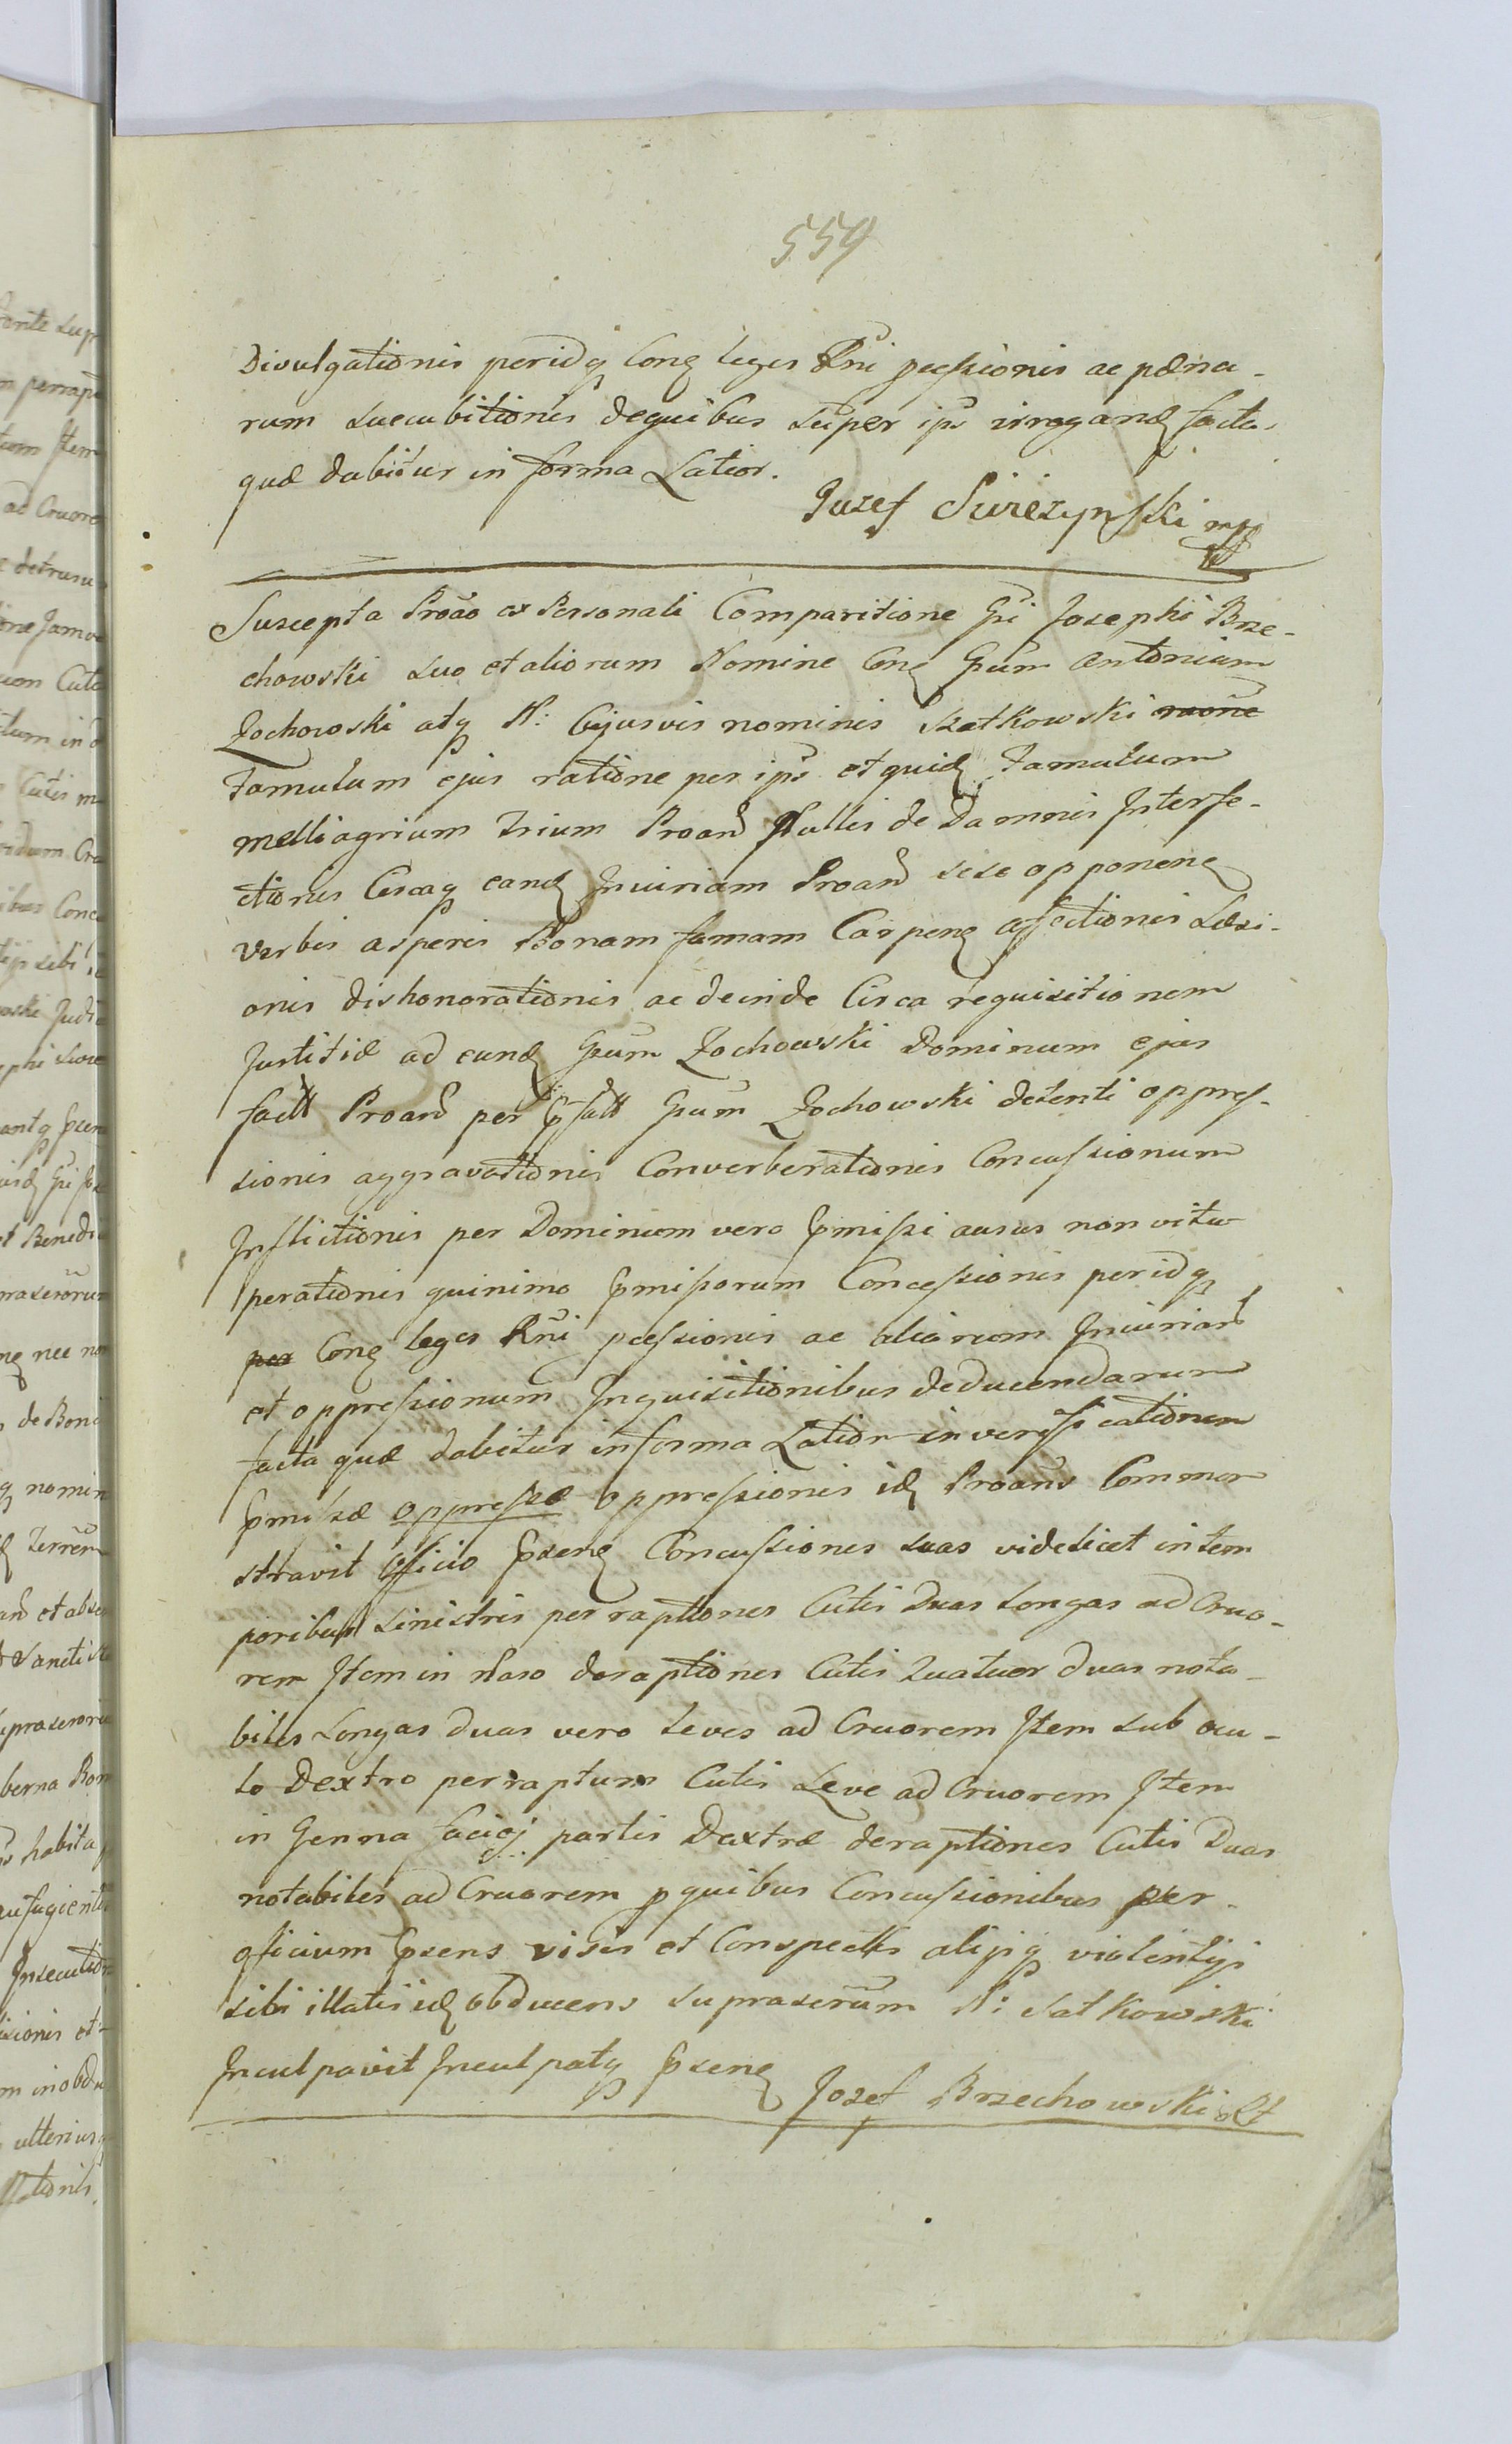 559
Divulgationis peridq Conq leges Rni pcessionis ac pœna-
rum succubitionis dequibus super ips irrogand facta
quæ dabitur in forma Latior.
Juzef Swieszynski mp
Suscepta Proāo ex Personali Comparitione Gsi Josephi Brze-
chowski suo et aliorum Nomine Conq Gsum Antonium
Zochowski atq N: Cujusvis nominis Szatkowski raōne
Famulum ejus ratione per ips et quid Famulum
melliagrium trium Proand Pullis de Damnis Interfe-
ctionis Circaq eand Injuriam Proand sese opponend
verbis asperis Bonam famam Carpend affectionis Læsi-
onis dishonorationis ac deinde Circa requisitionem
Justitiæ ad eund Gsum Zochowski Dominum ejus
factt Proand per Pfatt Gsum Zochowski detenti oppres-
sionis aggravationis Converberationis Concussionum
Inflictionis per Dominum vero Pmissi ausus non vitu-
perationis quinimo Pmissorum Concessionis peridq
per Conq leges Rni pcessionis ac aliarum Injuriard
et oppressionum Inquisitionibus deducendarum
facta quæ dabitur in forma Latior in verificationem
Pmissæ oppressæ oppressionis id Proans Common
stravit officio Psend Concussiones suas videlicet in tem
poribus sinistris per raptiones Cutis Duas Longas ad Cruo-
rem Item in Naso deraptiones Cutis Quatuor duas nota-
biles Longas duas vero leves ad Cruorem Item sub ocu-
lo Dextro perraptum Cutis Leve ad Cruorem Item
in Genna faciej partis Dextræ deraptiones Cutis Duas
notabiles ad Cruorem p quibus Concussionibus per-
officium Psens visis et Conspectis alijsq violentijs
sibi illatis id obducens suprascrum N: Satkowski
Inculpavit Inculpatq Psend
Jozef Brzechowski